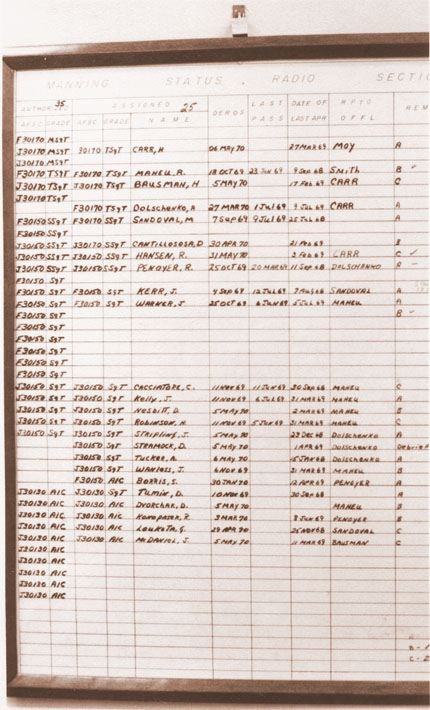 MANNING STATUS - RADIO SECTI
AUTHORIZED 35 ASSIGNED 25 DEROS LAST PASS DATE OF LAST APR RPTG OFFL REM
AFSC GRADE AFSC GRADE NAME
F30170 MSGT
J30170 MSGT 30170 TSGT CARR, H 06 MAY 70 27 MAR 69 MOY A
J30170 MSGT
F30170 TSGT F30170 TSGT MAHEU, R. 18 OCT 69 23 JUN 69 9 SEP 68 SMITH B ✓
J30170 TSGT J30170 TSGT BAUSMAN, H 5 MAY 70 17 FEB 69 CARR C
J30170 TSGT
F30170 TSGT DOLSCHENKO, A 27 MAR 70 1 JUL 69 9 JUL 69 CARR A
F30150 SSGT F30170 SSGT SANDOVAL, M 7 SEP 69 9 JUL 69 25 JUL 68 A
F30150 SSGT
J30150 SSGT J30170 SSGT CANTILLOSOSA, D 30 APR 70 21 FEB 69 B
J30150 SSGT J30150 SSGT HANSEN, R. 31 MAY 70 3 FEB 69 CARR C ✓
J30150 SSGT J30150 SSGT PENOYER, R. 25 OCT 69 20 MAR 69 11 SEP 68 DOLSCHENKO
F30150 SGT
F30150 SGT F30150 SGT KERR, J. 4 SEP 69 12 JUL 69 7 AUG 68 SANDOVAL A
F30150 SGT F30150 SGT WARNER, J. 25 OCT 69 6 JUN 69 5 JUL 69 MAHEU A
F30150 SGT B ✓
F30150 SGT
F30150 SGT
F30150 SGT
F30150 SGT
F30150 SGT
J30150 SGT J30150 SGT CACCIATORE, C. 11 NOV 69 11 JUN 69 30 SEP 68 MAHEU C
J30150 SGT J30150 SGT KELLY, J. 11 NOV 69 6 JUL 69 31 MAR 69 MAHEU A
J30150 SGT J30150 SGT NESBITT, D. 5 MAY 70 2 MAR 69 MAHEU B
J30150 SGT J30150 SGT ROBINSON, H. 11 NOV 69 5 JUN 69 31 MAR 69 MAHEU C
J30150 SGT J30150 SGT STRIPLING, J. 5 MAY 70 23 DEC 68 DOLSCHENKO A
J30150 SGT STRAMOCK, D. 5 MAY 70 1 APR 69 DOLSCHENKO
J30150 SGT TUCKER, A. 6 MAY 70 15 JAN 68 DOLSCHENKO A
J30150 SGT WANLESS, J. 6 NOV 69 31 MAR 69 MAHEU B
F30150 A1C BORRIS, S. 30 JAN 70 12 APR 69 PENOYER A
J30130 A1C J30130 SGT TUMIN, D. 10 NOV 69 30 SEP 68 A
J30130 A1C J30130 A1C DVORCHAK, D. 5 MAY 70 MAHEU B
J30130 A1C J30130 A1C KONOPASEK, R. 3 MAR 70 8 JUN 69 PENOYER B
J30130 A1C J30130 A1C LOUKOTA, G. 29 APR 70 25 NOV 68 SANDOVAL C
J30130 A1C J30130 A1C MCDANIEL, J. 5 MAY 70 11 MAR 69 BAUSMAN C
J30130 A1C
J30130 A1C
J30130 A1C
J30130 A1C
J30130 A1C
B - 1
C - 2